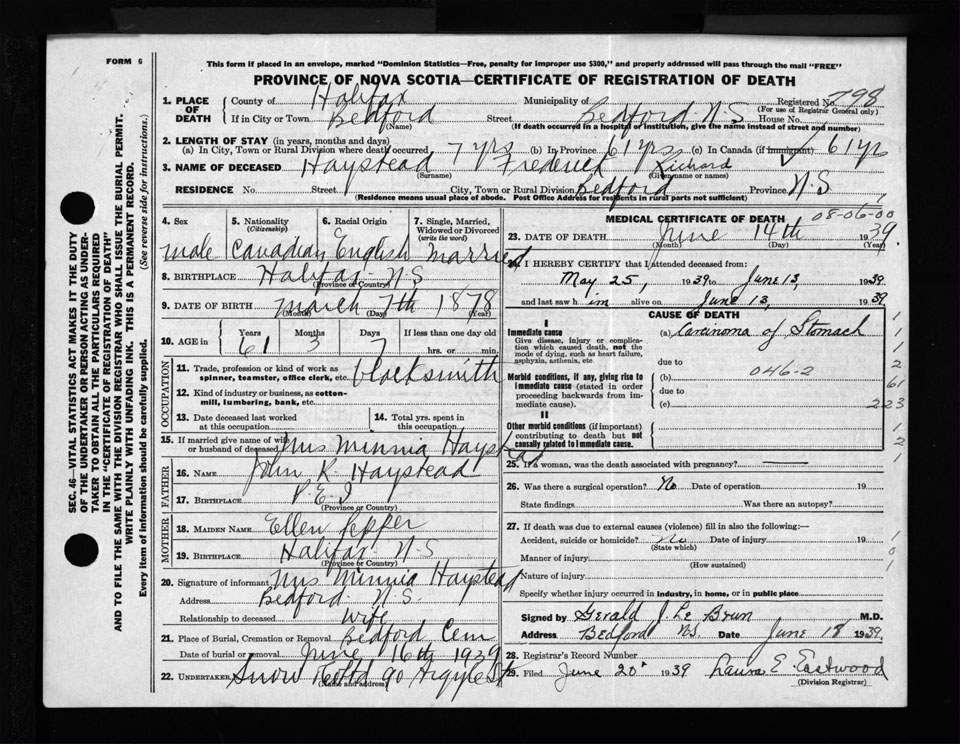 FORM 6
This form if placed in an envelope, marked "Dominion Statistics—Free, penalty for improper use $300," and properly addressed will pass through the mail "FREE"
PROVINCE OF NOVA SCOTIA—CERTIFICATE OF REGISTRATION OF DEATH
1. PLACE OF DEATH County of Halifax Municipality of Registered No. 798
(For use of Registrar General only)
If in City or Town Bedford Street Bedford N.S House No.
(Name) (If death occurred in a hospital or institution, give the name instead of street and number)
2. LENGTH OF STAY (in years, months and days)
(a) In City, Town or Rural Division where death occurred 7 yrs (b) In Province 61 yrs (c) In Canada (if immigrant) 61 yrs
3. NAME OF DECEASED Haystead Frederick Richard
(Surname) (Given name or names)
RESIDENCE No. Street City, Town or Rural Division Bedford Province N.S.
(Residence means usual place of abode. Post Office Address for residents in rural parts not sufficient)
4. Sex 5. Nationality (Citizenship) 6. Racial Origin 7. Single, Married, Widowed or Divorced (write the word)
male Canadian English married
8. BIRTHPLACE Halifax N.S
(Province or Country)
9. DATE OF BIRTH March 7th 1878
(Month) (Day) (Year)
10. AGE in Years Months Days If less than one day old
61 3 7 hrs. or min.
OCCUPATION
11. Trade, profession or kind of work as spinner, teamster, office clerk, etc. blacksmith
12. Kind of industry or business, as cotton-mill, lumbering, bank, etc.
13. Date deceased last worked at this occupation 14. Total yrs. spent in this occupation
15. If married give name of wife or husband of deceased Mrs Minnia Haystead
FATHER
16. NAME John R. Haystead
17. BIRTHPLACE P.E.I
(Province or Country)
MOTHER
18. MAIDEN NAME Ellen Pepper
19. BIRTHPLACE Halifax N.S
(Province or Country)
20. Signature of informant Mrs Minnia Haystead
Address Bedford N.S.
Relationship to deceased Wife
21. Place of Burial, Cremation or Removal Bedford Cem
Date of burial or removal June 16th 1939
22. UNDERTAKER Snow 90 Argyle St
(Name and address)
MEDICAL CERTIFICATE OF DEATH
08-06-00
23. DATE OF DEATH June 14th 1939
(Month) (Day) (Year)
24. I HEREBY CERTIFY that I attended deceased from:
May 25, 1939 to June 13, 1939
and last saw him alive on June 13, 1939
CAUSE OF DEATH
I
Immediate cause
Give disease, injury or complication which caused death, not the mode of dying, such as heart failure, asphyxia, asthenia, etc
(a) Carcinoma of Stomach
due to
Morbid conditions, if any, giving rise to immediate cause (stated in order proceeding backwards from immediate cause).
(b) 046-2
due to
(c)
II
Other morbid conditions (if important) contributing to death but not causally related to immediate cause.
1
1
2
61
223
1
2
1
25. If a woman, was the death associated with pregnancy?
26. Was there a surgical operation? No Date of operation 19
State findings Was there an autopsy?
27. If death was due to external causes (violence) fill in also the following:—
Accident, suicide or homicide? No Date of injury 19
(State which)
Manner of injury
(How sustained)
Nature of injury
Specify whether injury occurred in industry, in home, or in public place
1
0
1
Signed by Gerald J. Le Brun M.D.
Address Bedford N.S. Date June 18 1939
28. Registrar's Record Number
29. Filed June 20 1939 Laura E. Eastwood
(Division Registrar)
SEC. 46—VITAL STATISTICS ACT MAKES IT THE DUTY
OF THE UNDERTAKER OR PERSON ACTING AS UNDER-
TAKER TO OBTAIN ALL THE PARTICULARS REQUIRED
IN THE "CERTIFICATE OF REGISTRATION OF DEATH"
AND TO FILE THE SAME WITH THE DIVISION REGISTRAR WHO SHALL ISSUE THE BURIAL PERMIT.
WRITE PLAINLY WITH UNFADING INK. THIS IS A PERMANENT RECORD.
Every item of information should be carefully supplied. (See reverse side for instructions.)